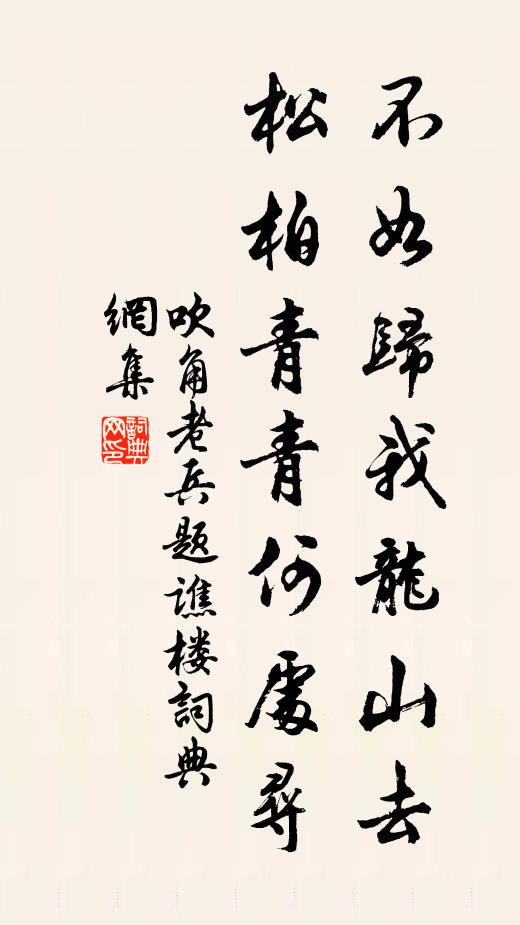 不如歸我龍山去
松柏青青何處尋
吹角老兵題譙楼詞典
網集
詞典
网印